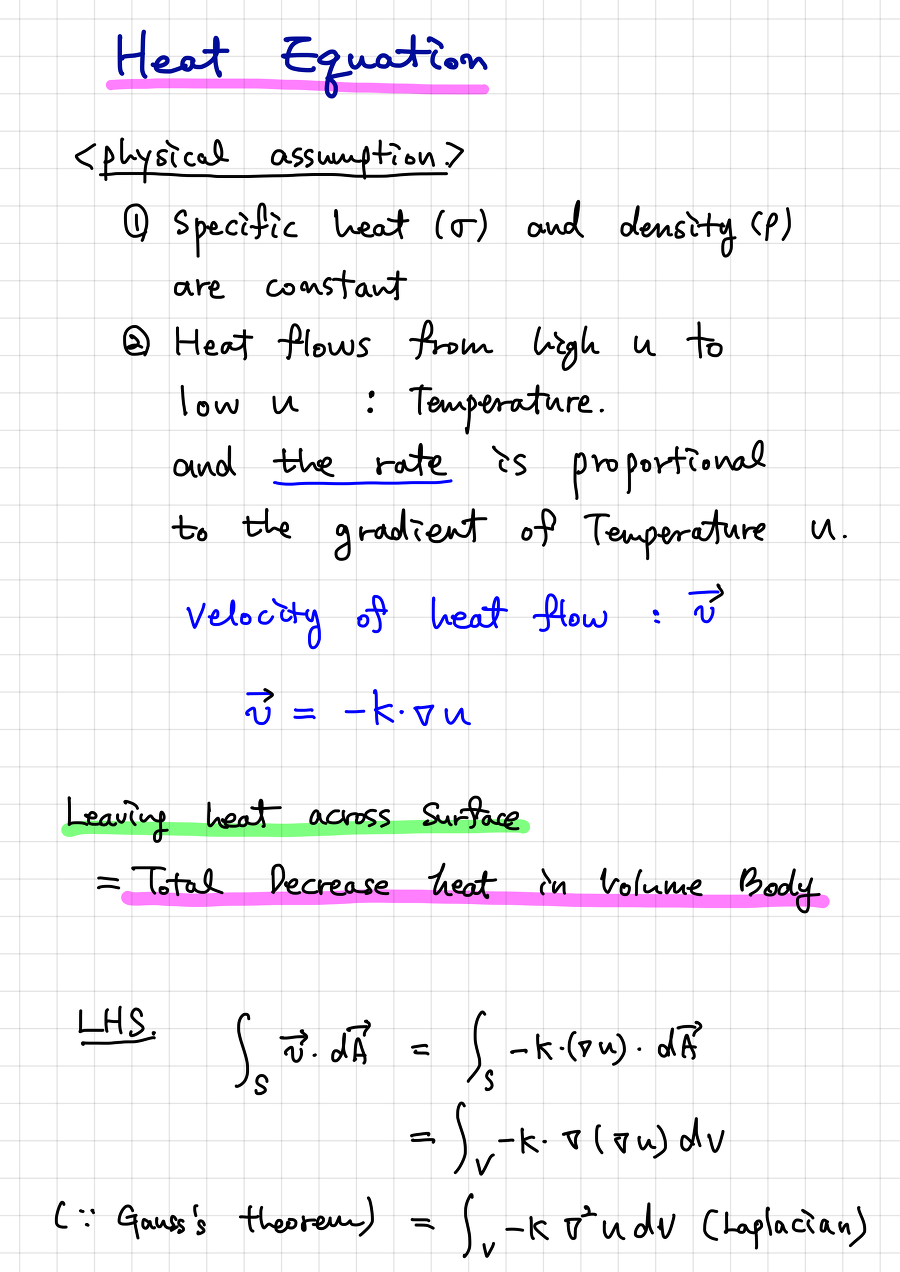 Heat Equation
<physical assumption>
① Specific heat (σ) and density (ρ)
are constant
② Heat flows from high u to
low u : Temperature.
and the rate is proportional
to the gradient of Temperature u.
Velocity of heat flow : v⃗
v⃗ = -k·∇u
Leaving heat across Surface
= Total Decrease heat in Volume Body
LHS. ∫_S v⃗·dA⃗ = ∫_S -k·(∇u)·dA⃗
= ∫_V -k·∇(∇u)dV
(∵ Gauss's theorem) = ∫_V -k∇²u dV (Laplacian)